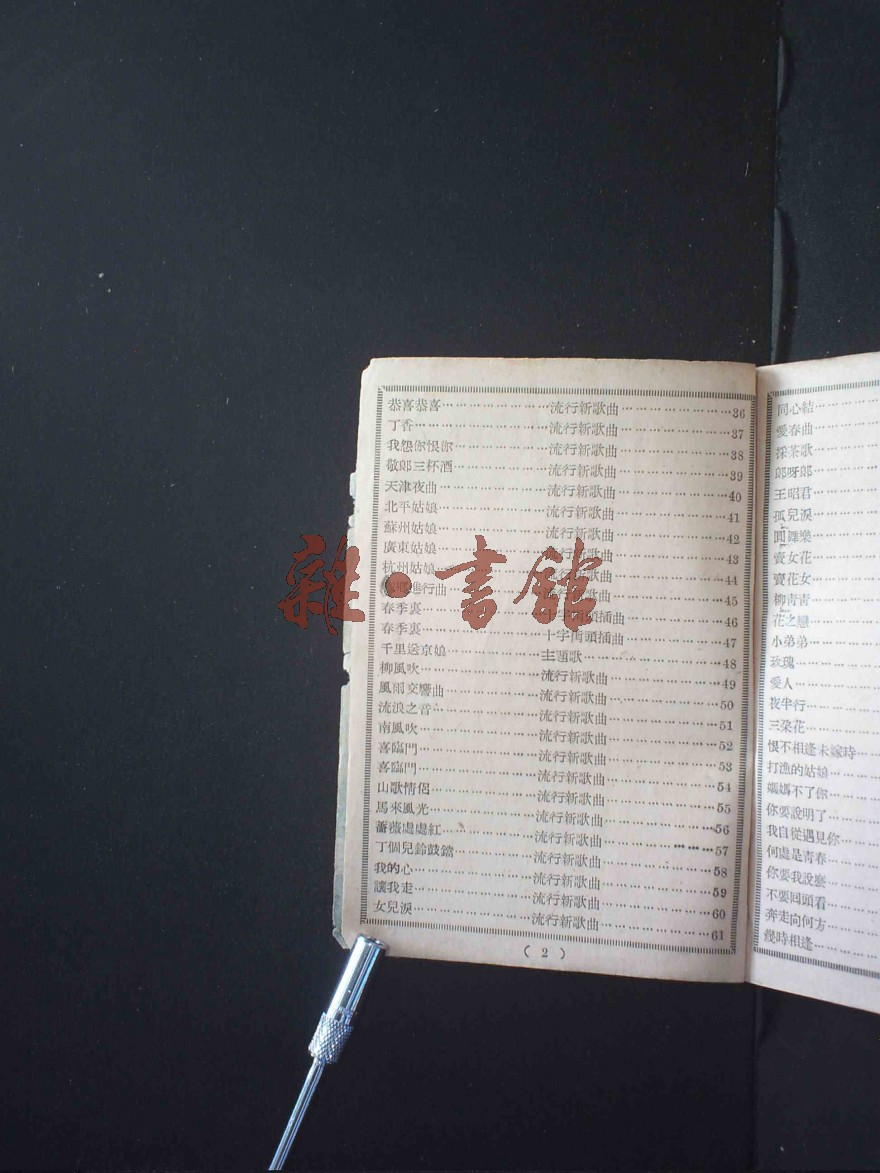 恭喜恭喜…………………流行新歌曲…………………36
丁香…………………流行新歌曲…………………37
我怨你恨你…………………流行新歌曲…………………38
敬郎三杯酒…………………流行新歌曲…………………39
天津夜曲…………………流行新歌曲…………………40
北平姑娘…………………流行新歌曲…………………41
蘇州姑娘…………………流行新歌曲…………………42
廣東姑娘…………………流行新歌曲…………………43
杭州姑娘…………………流行新歌曲…………………44
進行曲…………………流行新歌曲…………………45
春季裏…………………十字街頭插曲…………………46
春季裏…………………十字街頭插曲…………………47
千里送京娘…………………主題歌…………………48
柳風吹…………………流行新歌曲…………………49
風雨交響曲…………………流行新歌曲…………………50
流浪之音…………………流行新歌曲…………………51
南風吹…………………流行新歌曲…………………52
喜臨門…………………流行新歌曲…………………53
喜臨門…………………流行新歌曲…………………54
山歌情侶…………………流行新歌曲…………………55
馬來風光…………………流行新歌曲…………………56
薔薇處處紅…………………流行新歌曲…………………57
丁個兒鈴鼓鐺…………………流行新歌曲…………………58
我的心…………………流行新歌曲…………………59
讓我走…………………流行新歌曲…………………60
女兒淚…………………流行新歌曲…………………61
( 2 )
同心結
愛春曲
採茶歌
郎呀郎
王昭君
孤兒淚
圓舞樂
賣女花
賣花女
柳青青
花之戀
小弟弟
玫瑰
愛人
夜半行
三朶花
恨不相逢未嫁時
打漁的姑娘
媽媽不了你
你要說明了
我自從遇見你
何處是青春
你要我說麼
不要回頭看
奔走向何方
幾時相逢
雜·書館